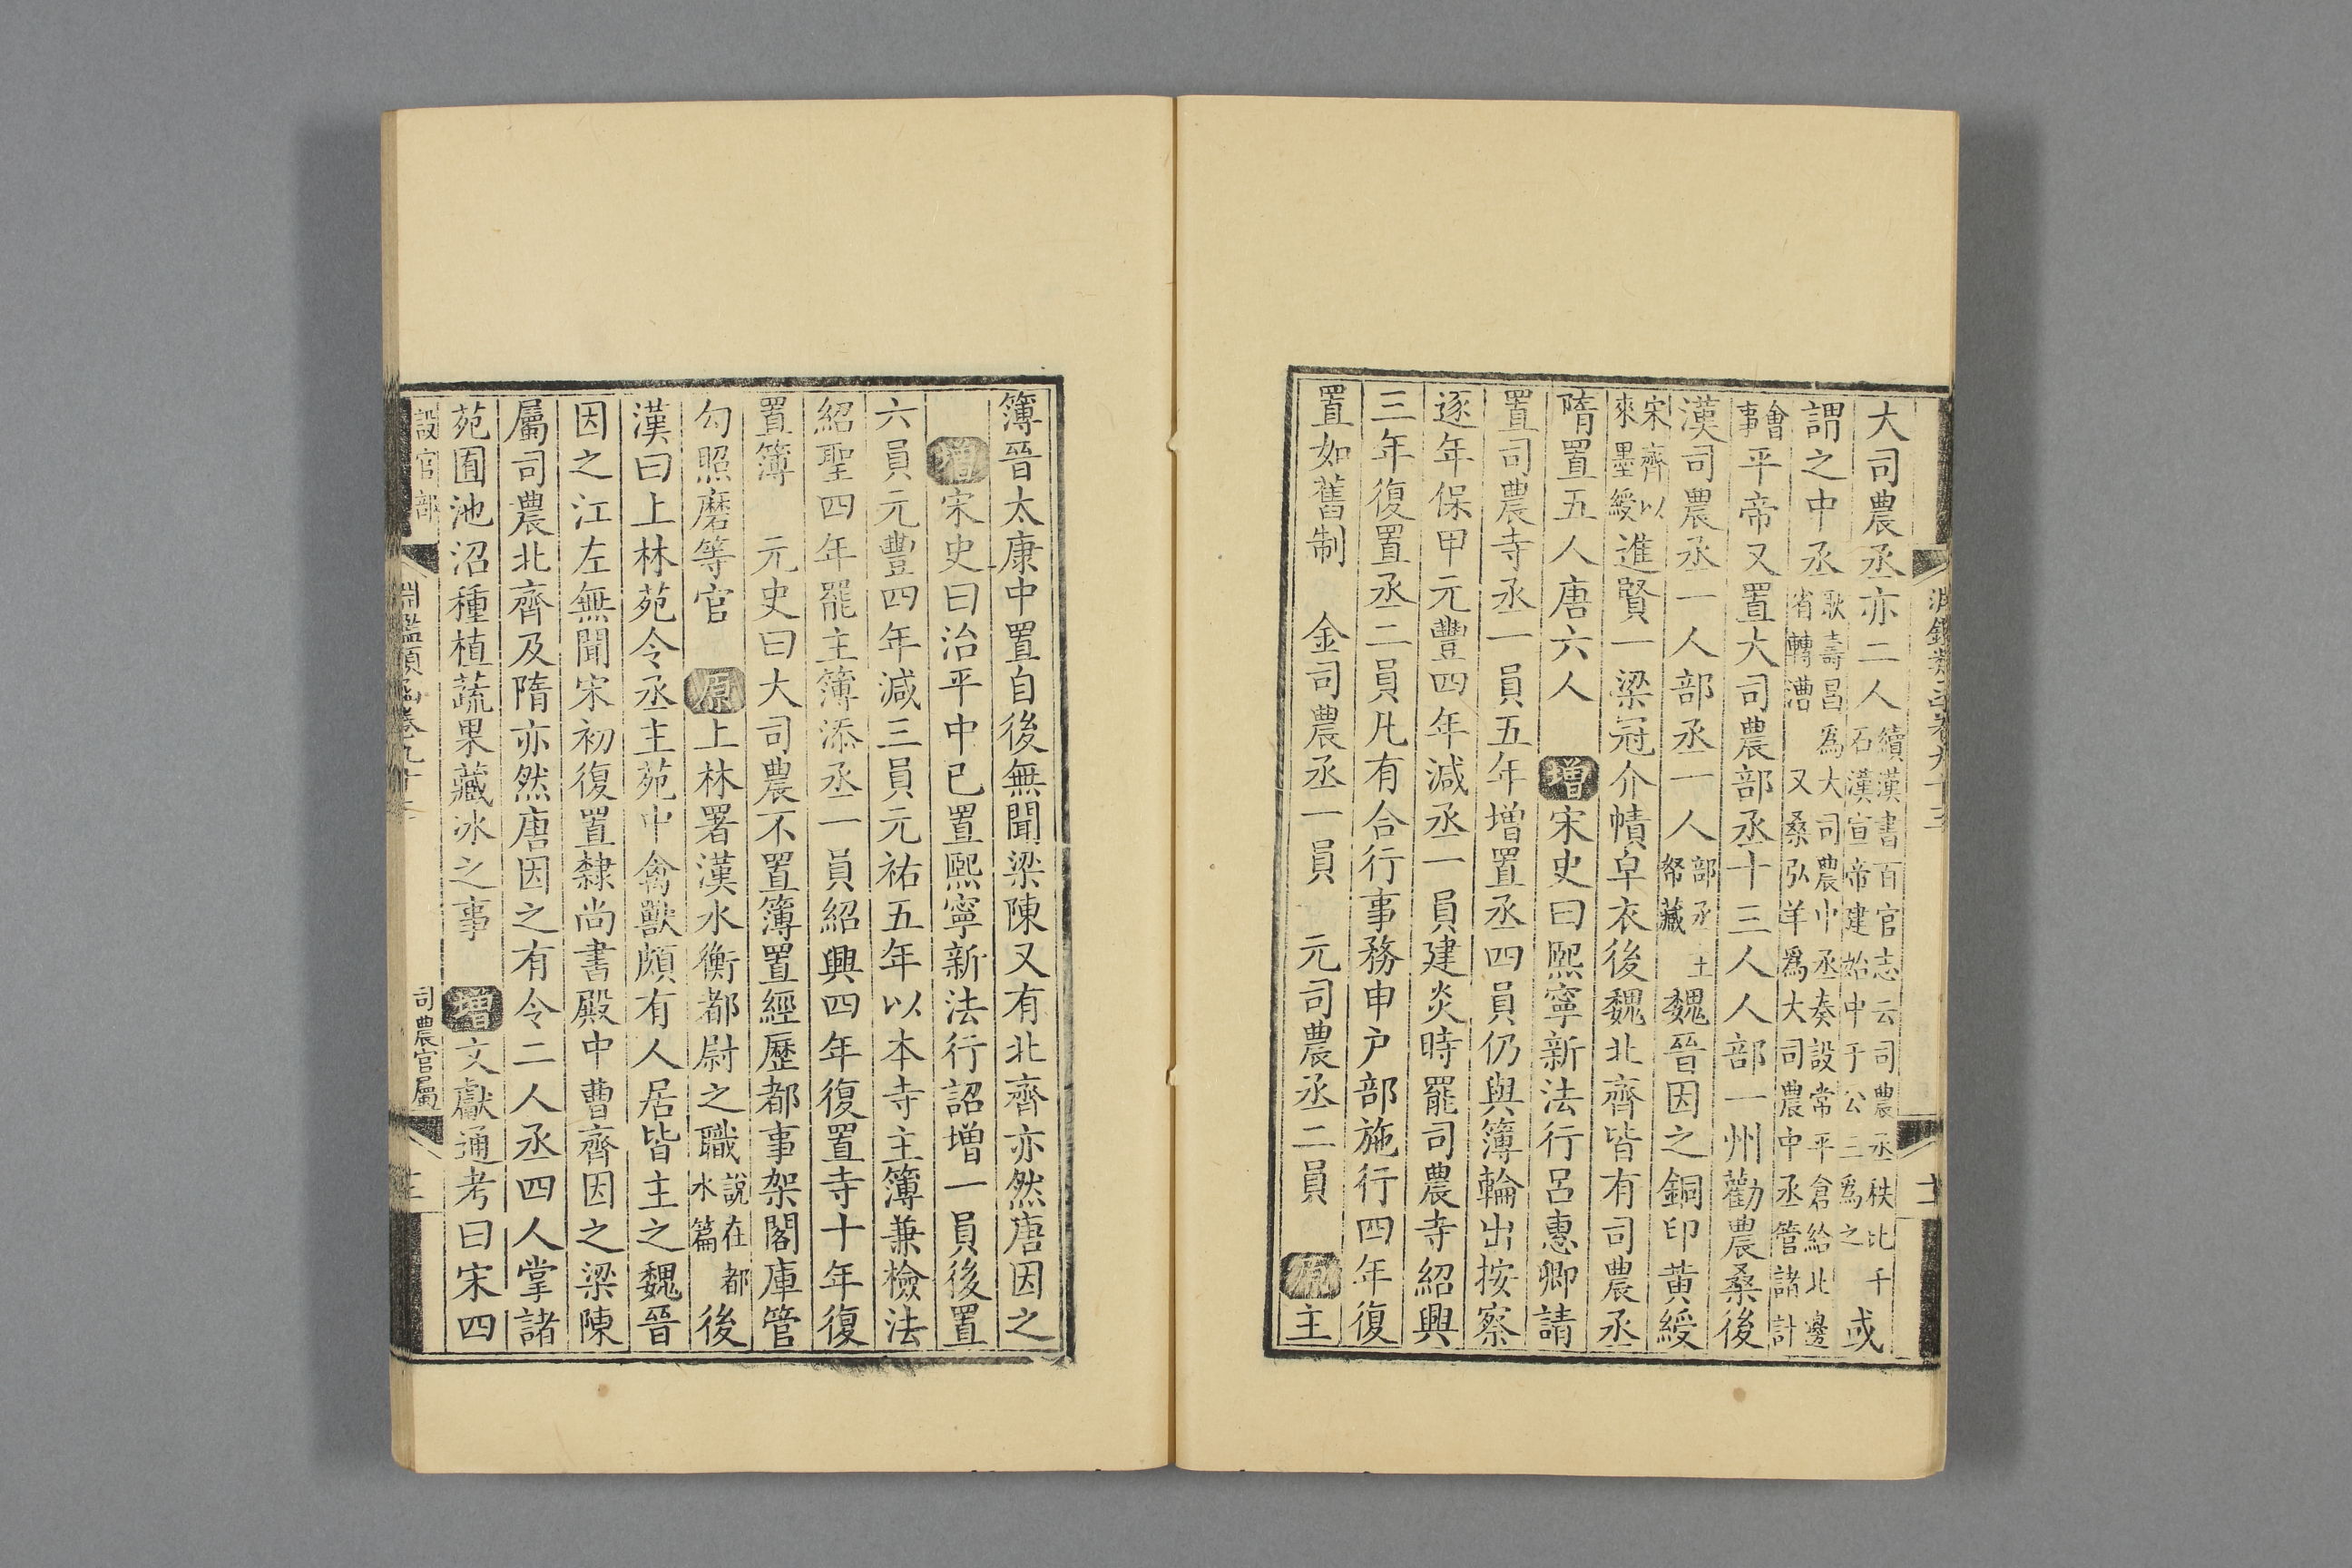 大司農丞亦二人續漢書百官志云司農丞秩比千石漢宣帝建始中于公三爲之或
謂之中丞歌壽昌爲大司農中丞奏設常平倉給北邊省轉漕又桑弘羊爲大司農中丞管諸計
會事平帝又置大司農部丞十三人人部一州勸農桑後
漢司農丞一人部丞一人部丞主帑藏魏晉因之銅印黃綬
宋齊以來墨綬進賢一梁冠介幘皁衣後魏北齊皆有司農丞
隋置五人唐六人 增宋史曰熙寧新法行呂惠卿請
置司農寺丞一員五年增置丞四員仍與簿輪出按察
逐年保甲元豐四年減丞一員建炎時罷司農寺紹興
三年復置丞二員凡有合行事務申户部施行四年復
置如舊制 金司農丞一員 元司農丞二員 原主
簿晉太康中置自後無聞梁陳又有北齊亦然唐因之
增宋史曰治平中已置熙寧新法行詔增一員後置
六員元豐四年減三員元祐五年以本寺主簿兼檢法
紹聖四年罷主簿添丞一員紹興四年復置寺十年復
置簿 元史曰大司農不置簿置經歷都事架閣庫管
勾照磨等官 原上林署漢水衡都尉之職說在都水篇後
漢曰上林苑令丞主苑中禽獸頗有人居皆主之魏晉
因之江左無聞宋初復置隸尚書殿中曹齊因之梁陳
屬司農北齊及隋亦然唐因之有令二人丞四人掌諸
苑囿池沼種植蔬果藏冰之事 增文獻通考曰宋四
設官部 淵鑑類函卷九十 司農官屬